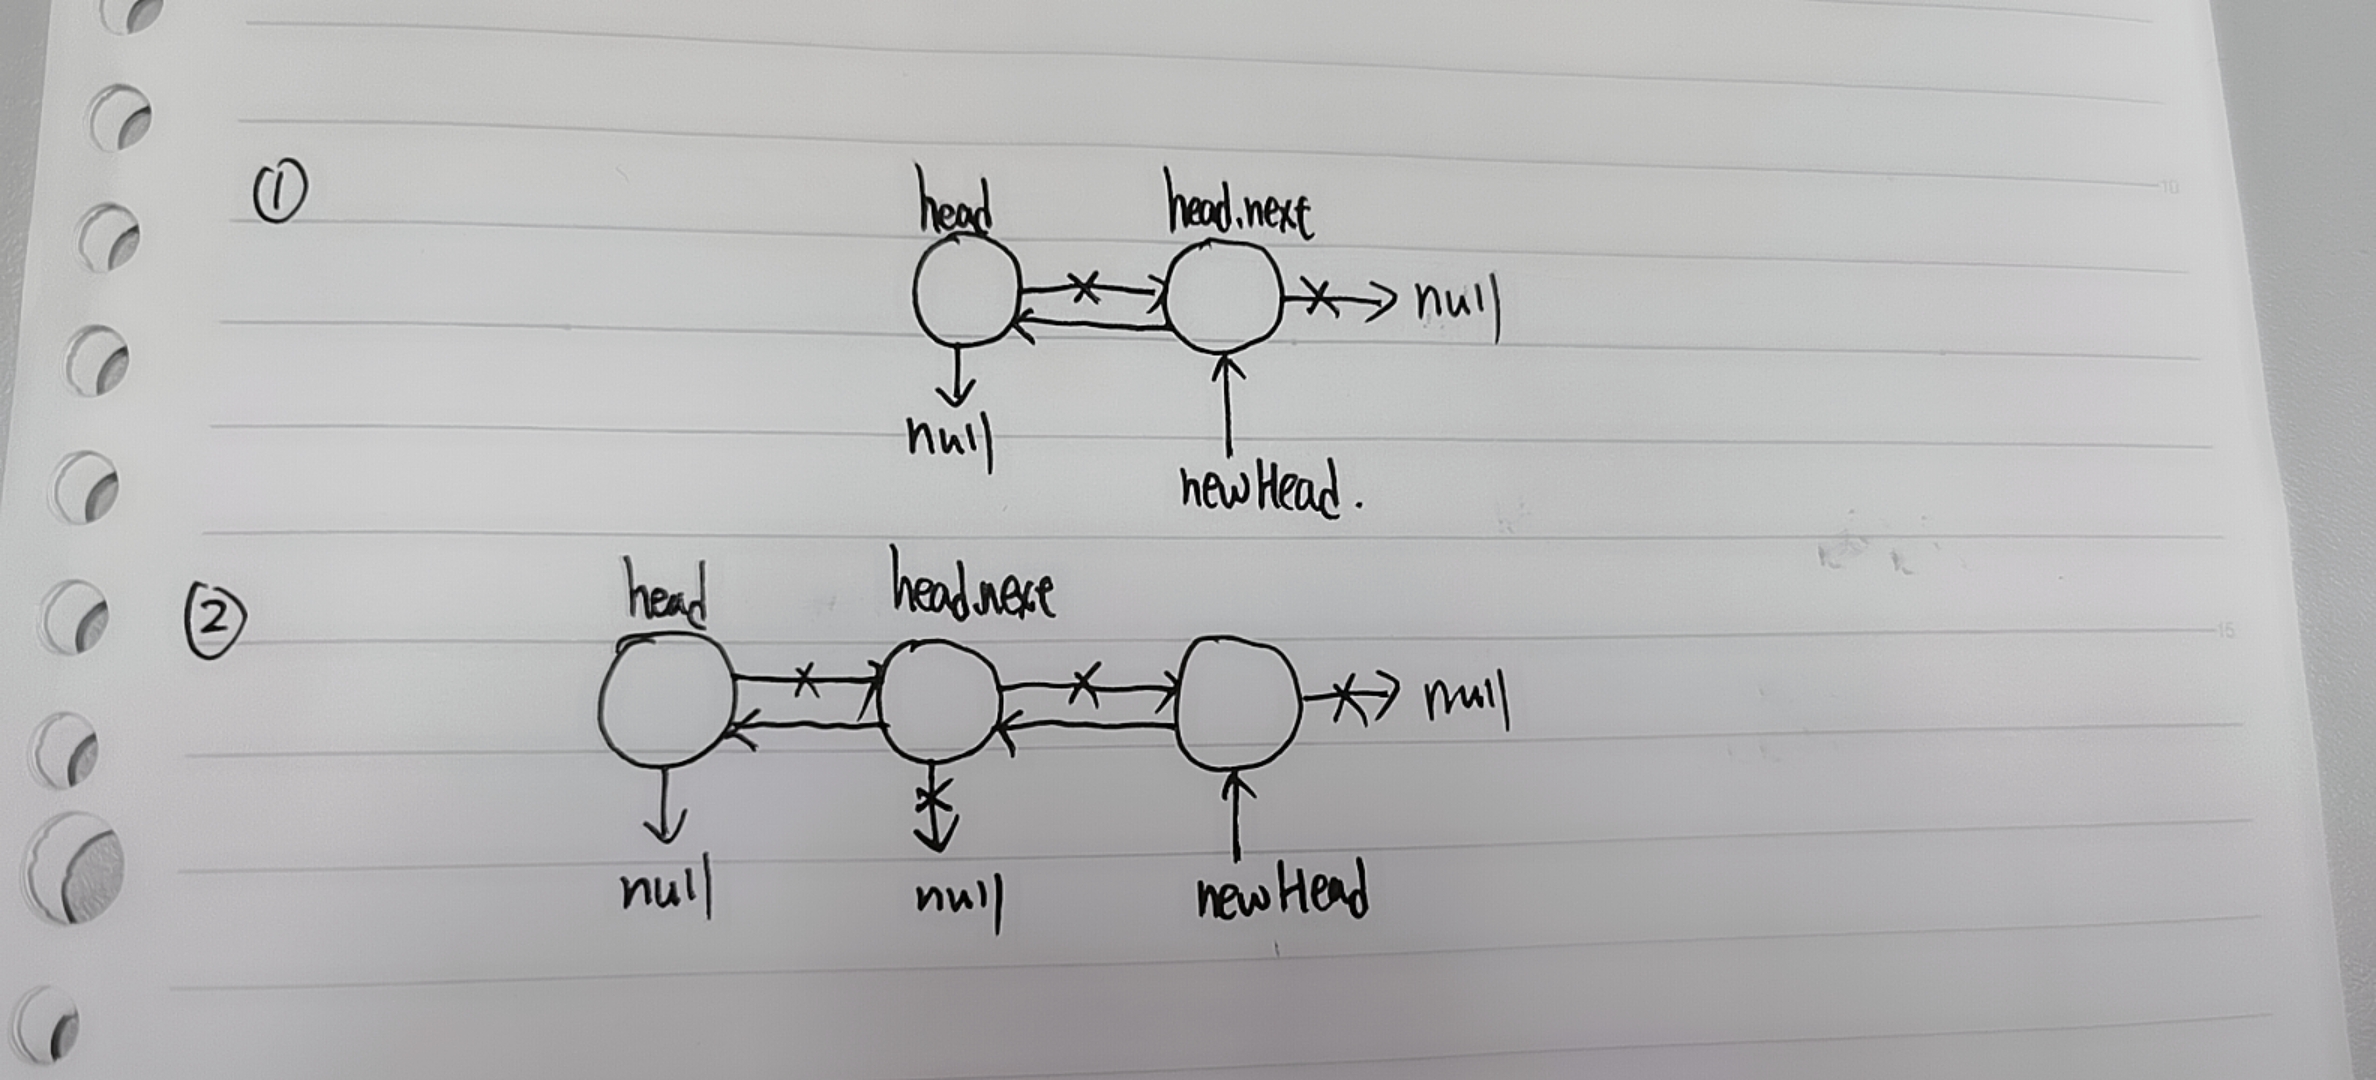 ①
head head.next
null
null
newHead.
②
head head.next
null
null null newHead